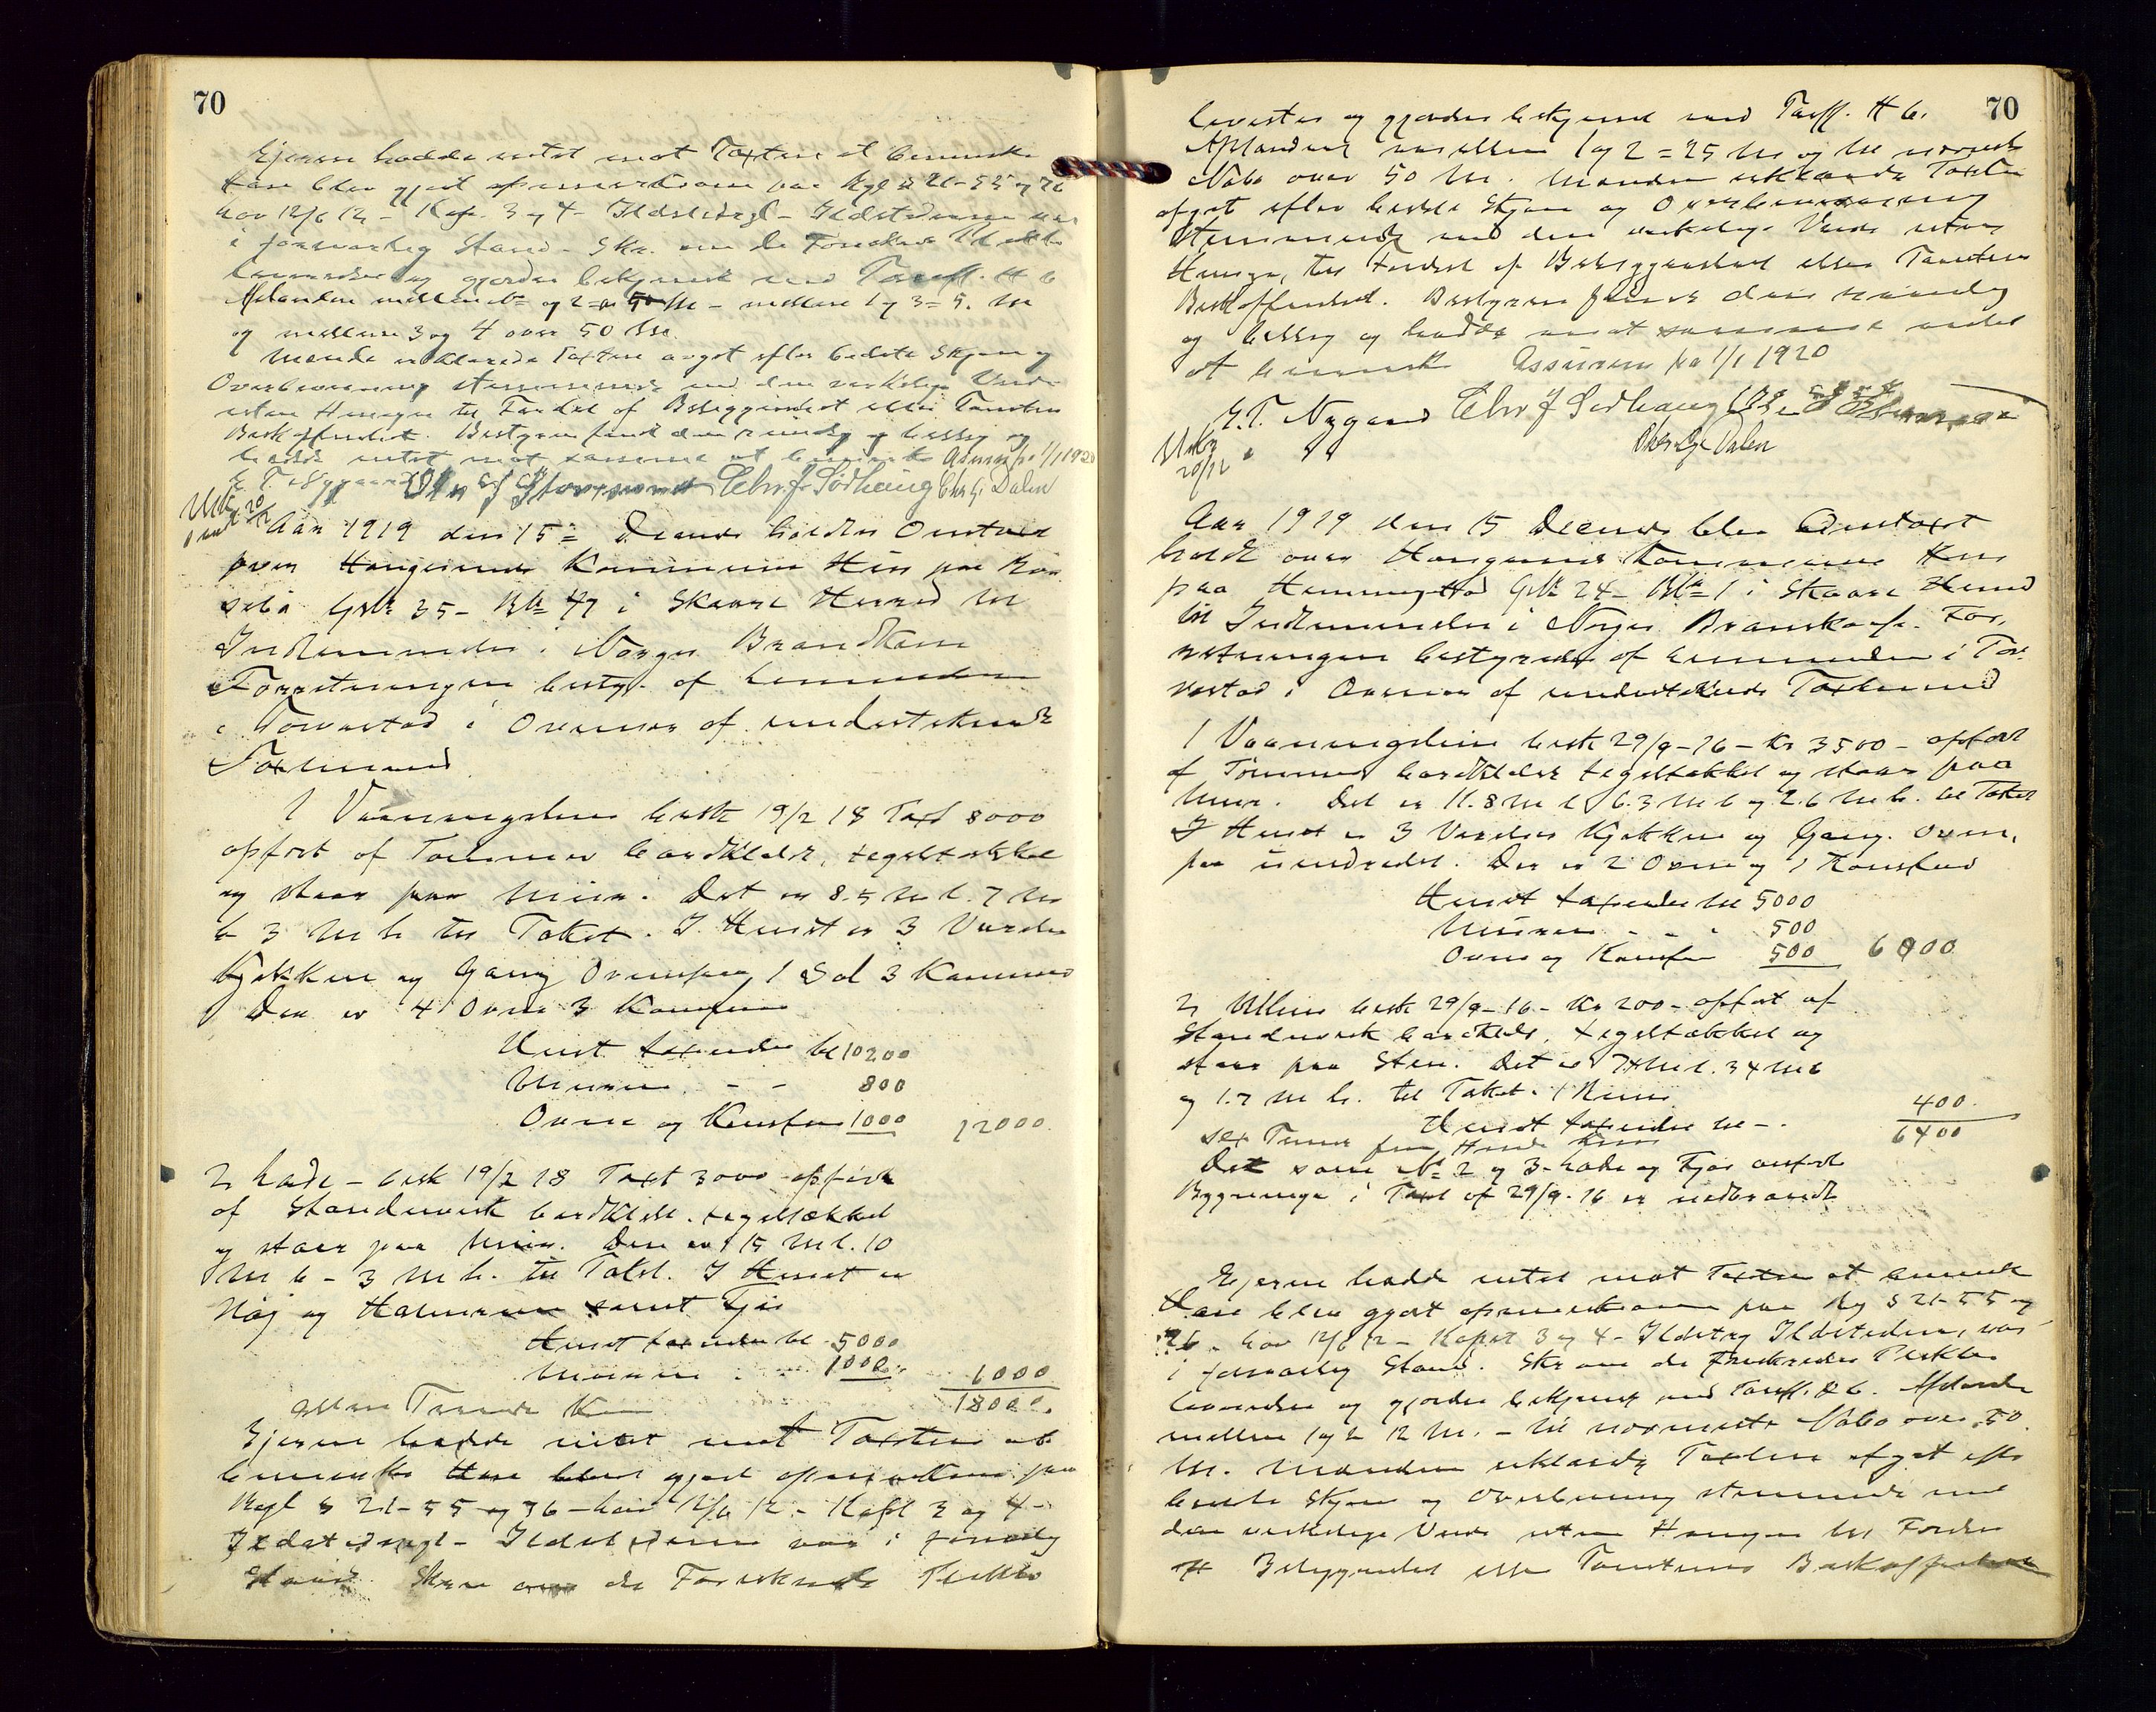 70
Ejeren hadde intet mot Taxten at bemerke
Han blev gjort opmerksom paa Rgl § 21-55 og 76
Lov 12/6 12 - Kap. 3 og 4 - Ildstedregl - Ildstederne var
i forsvarlig Stand - Skr. om de Foreskr Plikter
levertes og gjordes bekjendt med Tariff. H 6
Afstanden mellem 1 og 2 = 50 M - mellem 1 og 3 = 5. M
og mellem 3 og 4 over 50 M.
Mændene erklærede Taxten avgit efter bedste Skjøn og
Overbevisning stemmende med den virkelige Værdi
uten Hensyn til Fordel af Bebyggendet eller Tomtens
Beskaffenhet. Bestyreren fandt den rimelig og billig og
hadde intet mot samme at bemerke Assureres fra 1/1 1920
E. T. Nygaard Chr J Sørhaug Chr G Dalen
Aar 1919 den 15de Decemb holdtes Omtaxt
over Haugesunds Kommunes Hus paa
Gnr 35 - Bnr 47 i Skaare Herred til
Indlemmelse i Norges Brandkasse
Forretningen bestyr. af Lensmanden
i Torvastad i Overvær af undertegnede
Taxtmænd
1 Vaaningshus besk 19/2 18 Taxt 8000
opført af Tømmer bordklædt, tegltækket
og staar paa Mur. Det er 8.5 M l. 7 M
b 3 M h til Taket. I Huset er 3 Værelser
Kjøkken og Gang Ovenpaa 1 Sal 3 Kammer
Der er 4 Ovne 3 Komfurer
Huset taxeredes til 10200
Muren - - 800
Ovne og Komfur 1000 12000
2, Lade - besk 19/2 18 Taxt 3000 opført
af Standverk bordklædt. tegltækket
og staar paa Mur. Den er 15 M l. 10
M b - 3 M h. til Taket. I Huset er
Høj og Halmrum samt Fjøs
Huset taxeredes til 5000
Muren - - 1000 6000
18000.
Atten Tusende Kroner
Ejeren hadde intet mot Taxten at
bemerke Han blev gjort opmerksom paa
Regl § 21-55 og 76 - Lov 12/6 12 - Kapt 3 og 4 -
Ildstedregl - Ildstederne var i forsvarlig
Stand Skr om de Foreskrevne Plikter
70
levertes og gjordes bekjendt med Tariff. H 6.
Afstanden mellem 1 og 2 = 25 M og til nærmeste
Nabo over 50 M. Mændene erklærede Taxten
afgit efter bedste Skjøn og Overbevisning
stemmende med den virkelige Værdi uten
Hensyn til Fordel af Bebyggendet eller Tomtens
Beskaffenhet. Bestyreren fandt den rimelig
og billig og hadde mot samme intet
at bemerke Assureres fra 1/1 1920
E. T. Nygaard Chr J Sørhaug
Dalen
20/12
Aar 1919 den 15 Decemb blev Omtaxt
holdt over Haugesunds Kommunes Hus
paa Gnr 24 - Bnr 1 i Skaare Herred
til Indlemmelse i Norges Brandkasse. For-
retningen bestyredes af Lensmanden i Tor-
vastad i Overvær af undertegnede Taxtmænd
1 Vaaningshus besk 29/9-16 - Kr 3500 - opført
af Tømmer bordklædt tegltækket og staar paa
Mur. Det er 11.8 M l 6.3 M b og 2.6 M h. til Taket
I Huset er 3 Værelser Kjøkken og Gang. Oven-
paa uindredet. Der er 2 Ovne og 1 Komfur
Huset taxeredes til 5000
Muren - - 500
Ovne og Komfur 500 6000
2, besk 29/9-16 - Kr 200 - opført af
Standverk bordklædt, tegltækket og
staar paa Sten. Det er M l. 34 M b
og 1.7 M h. til Taket.
Huset taxeredes til - . 400
6400
sex Tusen fire Hundr Kroner
Det som No 2 og 3 - Lade og Fjøs anførte
Bygninger i Taxt af 29/9-16 er nedbrændt
Ejeren hadde intet mot Taxten at bemerke
Han blev gjort opmerksom paa Rg § 21-55 og
76 - Lov 12/6 12 - Kapt 3 og 4 - Ildstrg Ildstederne var
i forsvarlig Stand. Skr om de foreskrevne Plikter
levertes og gjordes bekjendt med Tariff. H 6. Afstanden
mellem 1 og 2 12 M. - til nærmeste Nabo over 50
M. Mændene erklærede Taxten afgit efter
bedste Skjøn og Overbevisning stemmende med
den virkelige Værdi uten Hensyn til Fordel
af Bebyggendet eller Tomtens Beskaffenhet